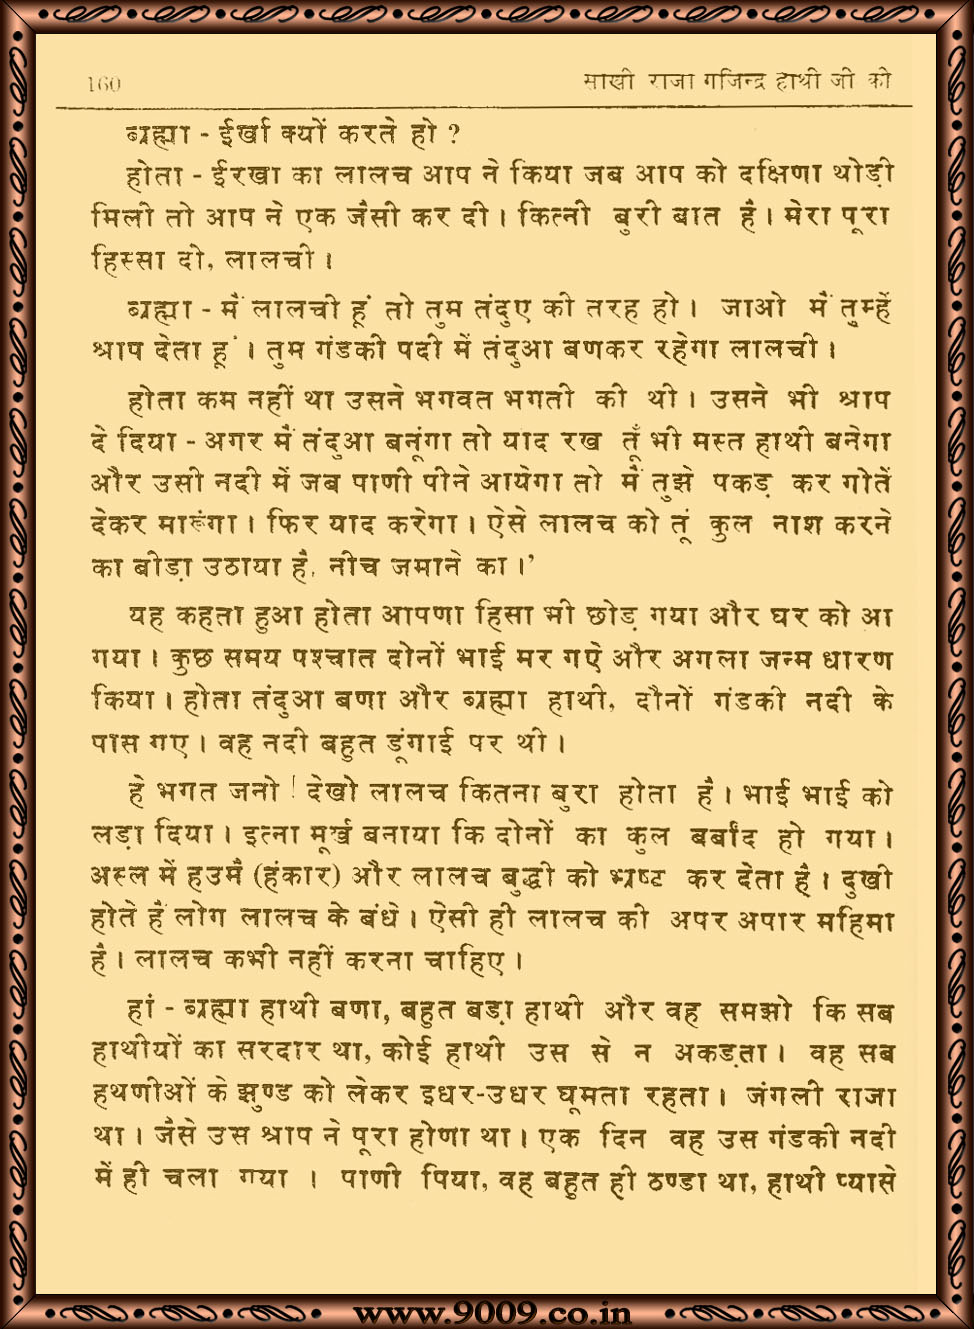 160 साखी राजा गजिन्द्र हाथी जी की
ब्रह्मा - ईर्खा क्यों करते हो ?
होता - ईरखा का लालच आप ने किया जब आप को दक्षिणा थोड़ी
मिली तो आप ने एक जैसी कर दी । कित्नी बुरी बात है । मेरा पूरा
हिस्सा दो, लालची ।
ब्रह्मा - मैं लालची हूं तो तुम तंदुए की तरह हो । जाओ मैं तुम्हें
श्राप देता हूं । तुम गंडकी पदी में तंदुआ बणकर रहेगा लालची ।
होता कम नहीं था उसने भगवत भगती की थी । उसने भी श्राप
दे दिया - अगर मैं तंदुआ बनूंगा तो याद रख तूँ भी मस्त हाथी बनेगा
और उसी नदी में जब पाणी पीने आयेगा तो मैं तुझे पकड़ कर गोतें
देकर मारूंगा । फिर याद करेगा । ऐसे लालच को तूं कुल नाश करने
का बीड़ा उठाया है, नीच जमाने का ।’
यह कहता हुआ होता आपणा हिसा भी छोड़ गया और घर को आ
गया । कुछ समय पश्चात दोनों भाई मर गऐ और अगला जन्म धारण
किया । होता तंदुआ बणा और ब्रह्मा हाथी, दौनों गंडकी नदी के
पास गए । वह नदी बहुत डूंगाई पर थी ।
हे भगत जनो ! देखो लालच कितना बुरा होता है । भाई भाई को
लड़ा दिया । इत्ना मूर्ख बनाया कि दोनों का कुल बर्बांद हो गया ।
अस्ल में हउमै (हंकार) और लालच बुद्धी को भ्रष्ट कर देता है । दुखी
होते हैं लोग लालच के बंधे । ऐसी ही लालच की अपर अपार महिमा
है । लालच कभी नहीं करना चाहिए ।
हां - ब्रह्मा हाथी बणा, बहुत बड़ा हाथी और वह समझो कि सब
हाथीयों का सरदार था, कोई हाथी उस से न अकड़ता । वह सब
हथणीओं के झुण्ड को लेकर इधर-उधर घूमता रहता । जंगली राजा
था । जैसे उस श्राप ने पूरा होणा था । एक दिन वह उस गंडकी नदी
में ही चला गया । पाणी पिया, वह बहुत ही ठण्डा था, हाथी प्यासे
www.9009.co.in